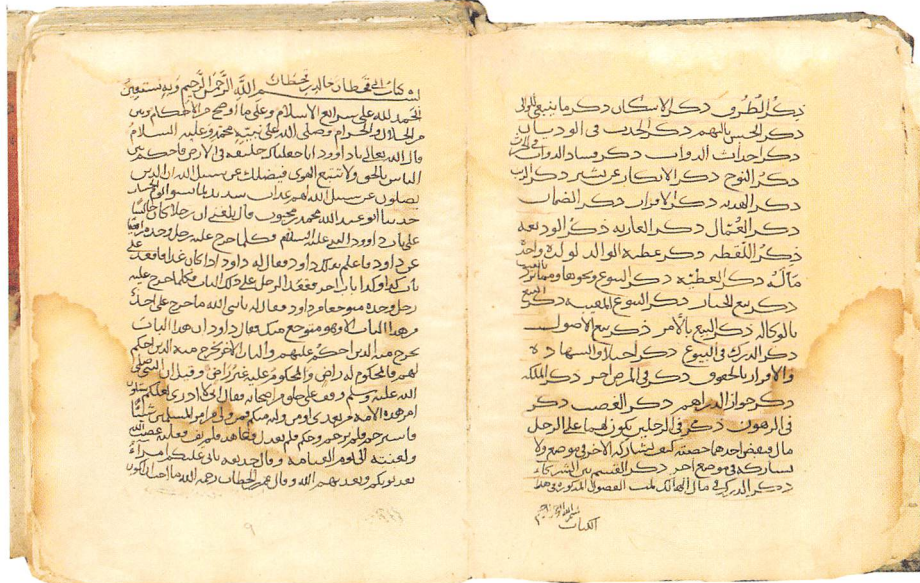 ذكر الطرق ذكر الاسكان ذكر ما ينبغي للوالي
ذكر الحبس بالتهم ذكر الحدث في الاوديه
ذكر احداث الدواب ذكر فساد الدواب في الحرث
ذكر النوح ذكر الانكار
ذكر الهديه ذكر الاقرار ذكر الضمان
ذكر العمال ذكر العاريه ذكر الوديعه
ذكر اللقطه ذكر عطية الوالد لولده واخذه
ماله ذكر العطيه ذكر البيوع ونحوها
ذكر بيع الخيار ذكر البيوع المغيبه ذكر البيع
بالوكاله ذكر البيع بالامر ذكر بيع الاصول
ذكر الدرك في البيوع ذكر احيا الشهاده
والاقرار بالحقوق ذكر في المرض اخر ذكر الملكه
ذكر جواز الدراهم ذكر الغصب ذكر
في الرهون ذكر في الرجلين يكون لهما على الرجل
مال فيقبض احدهما حصته كيف يشاركه الاخر في موضع ولا
يشاركه في موضع اخر ذكر القسم بين الشركاء
ذكر الدرك في مال الهالك تمت الفصول المذكوره في هذا
الكتاب
بسم الله الرحمن الرحيم وبه نستعين
الحمد لله على شرايع الاسلام وعلى ما اوضح من الاحكام وبين
من الحلال والحرام وصلى الله على نبيه محمد وعليه السلام
قال الله تعالى يا داوود انا جعلناك خليفه في الارض فاحكم بين
الناس بالحق ولا تتبع الهوى فيضلك عن سبيل الله ان الذين
يضلون عن سبيل الله لهم عذاب شديد بما نسوا يوم الحساب
حدثنا ابو عبد الله محمد بن محبوب قال بلغني ان رجلا كان جالسا
على باب داوود النبي عليه السلام وكلما خرج عليه رجل وحده راضيا
عن داود فاعلم بذلك داود فقال له داود اذا كان غدا فاقعد على
باب كذا وكذا باب اخر فقعد الرجل على ذلك الباب فكلما خرج عليه
رجل وحده متوجعا من داود فقال له يا نبي الله ما خرج علي احد
من هذا الباب الا وهو متوجع منك فقال داود ان هذا الباب
يخرج منه الذين احكم عليهم والباب الاخر يخرج منه الذين احكم
لهم فالمحكوم له راض والمحكوم عليه غير راض وقيل ان النبي صلى
الله عليه وسلم وقف على حلق من اصحابه فقال اني لا ادري لعلكم ستلون
امر هذه الامه من بعدي اومن وليه منكم فمن ولي من امر المسلمين شيئا
فاسترحم فلم يرحم وحكم فلم يعدل وعاهد فلم يف فعليه غضب الله
ولعنته الى يوم القيامه وقال حذيفه ياتي عليكم امراء
يعذبونكم ويعذبهم الله وقال عمر بن الخطاب رحمه الله ما احب ان اكون
٩